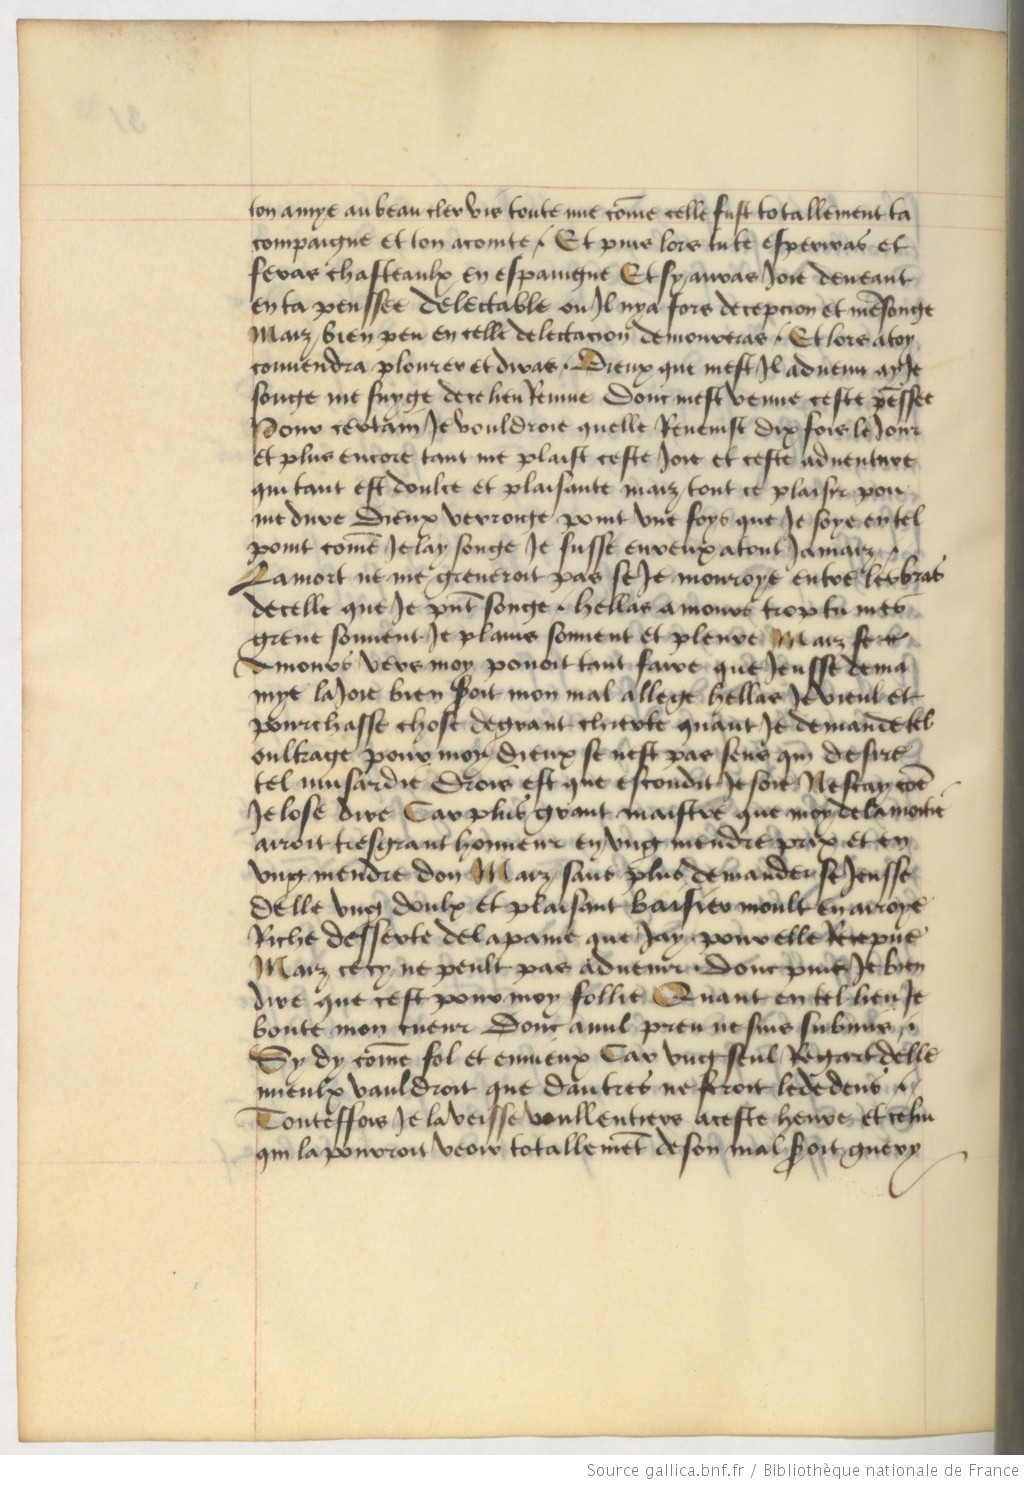 ton amye au beau cler vis toute nue cõme celle fust totallement ta
compaigne et ton acointe . Et puis lors tu te esperiras et
feras chasteaulx en espaingne Et sy auras Joie deneant
en ta penssee delectable ou Il nya fors decepcion et mẽsonge
Maiz bien peu en celle delectacion demourras . Et lors a toy
conuendra plourer et diras . Dieux que mest Il aduenu ay Je
songe me suyge de ce lieu Remue Donc mest venue ceste pẽssee
Pour certain Je vouldroie quelle Reuenist dix fois le Jour
et plus encore tant me plaist ceste Joie et ceste aduenture
qui tant est doulce et plaisante maiz tout ce plaisir pou
me dure Dieux verronge point vne foys que Je soye en tel
point comẽ Je lay songe Je fusse eureux a tout Jamaiz .
La mort ne me greueroit pas se Je mouroye entre les bras
de celle que Je pñt songe . hellas amours trop tu mes
greue souuent Je plains souuent et pleure Maiz se
Amours vers moy pouoit tant faire que Jeusse de ma
mye la Joie bien seroit mon mal allege hellas Je vieul et
pourchasse chose de grant chierte quant Je demande tel
oultrage pour moy Dieux se nest pas sens qui desire
tel musardie Drois est que escondit Je soie Ne scay cõe
Je lose dire Car plus grant maistre que moy de la moitie
auroit tresgrant honneur en vng mendre prix et en
vng mendre don Maiz sans plus demander se Jeusse
delle vng doulx et plaisant baisier moult en auroye
Riche desserte de la paine que Jay pour elle Recepue
Maiz cecy ne peult pas aduenir . Donc puis Je bien
dire que cest pour moy follie Quant en tel lieu Je
boute mon cueur Donc a nul preu ne suis subuius .
Sy dy cõme fol et ennieux Car vng seul Regart delle
mieulx vauldroit que dautres ne feroit le dedens .
Touteffois Je la veisse voullentiers a ceste heure et celui
qui la pourroit veoir totallemẽt de son mal seroit guery